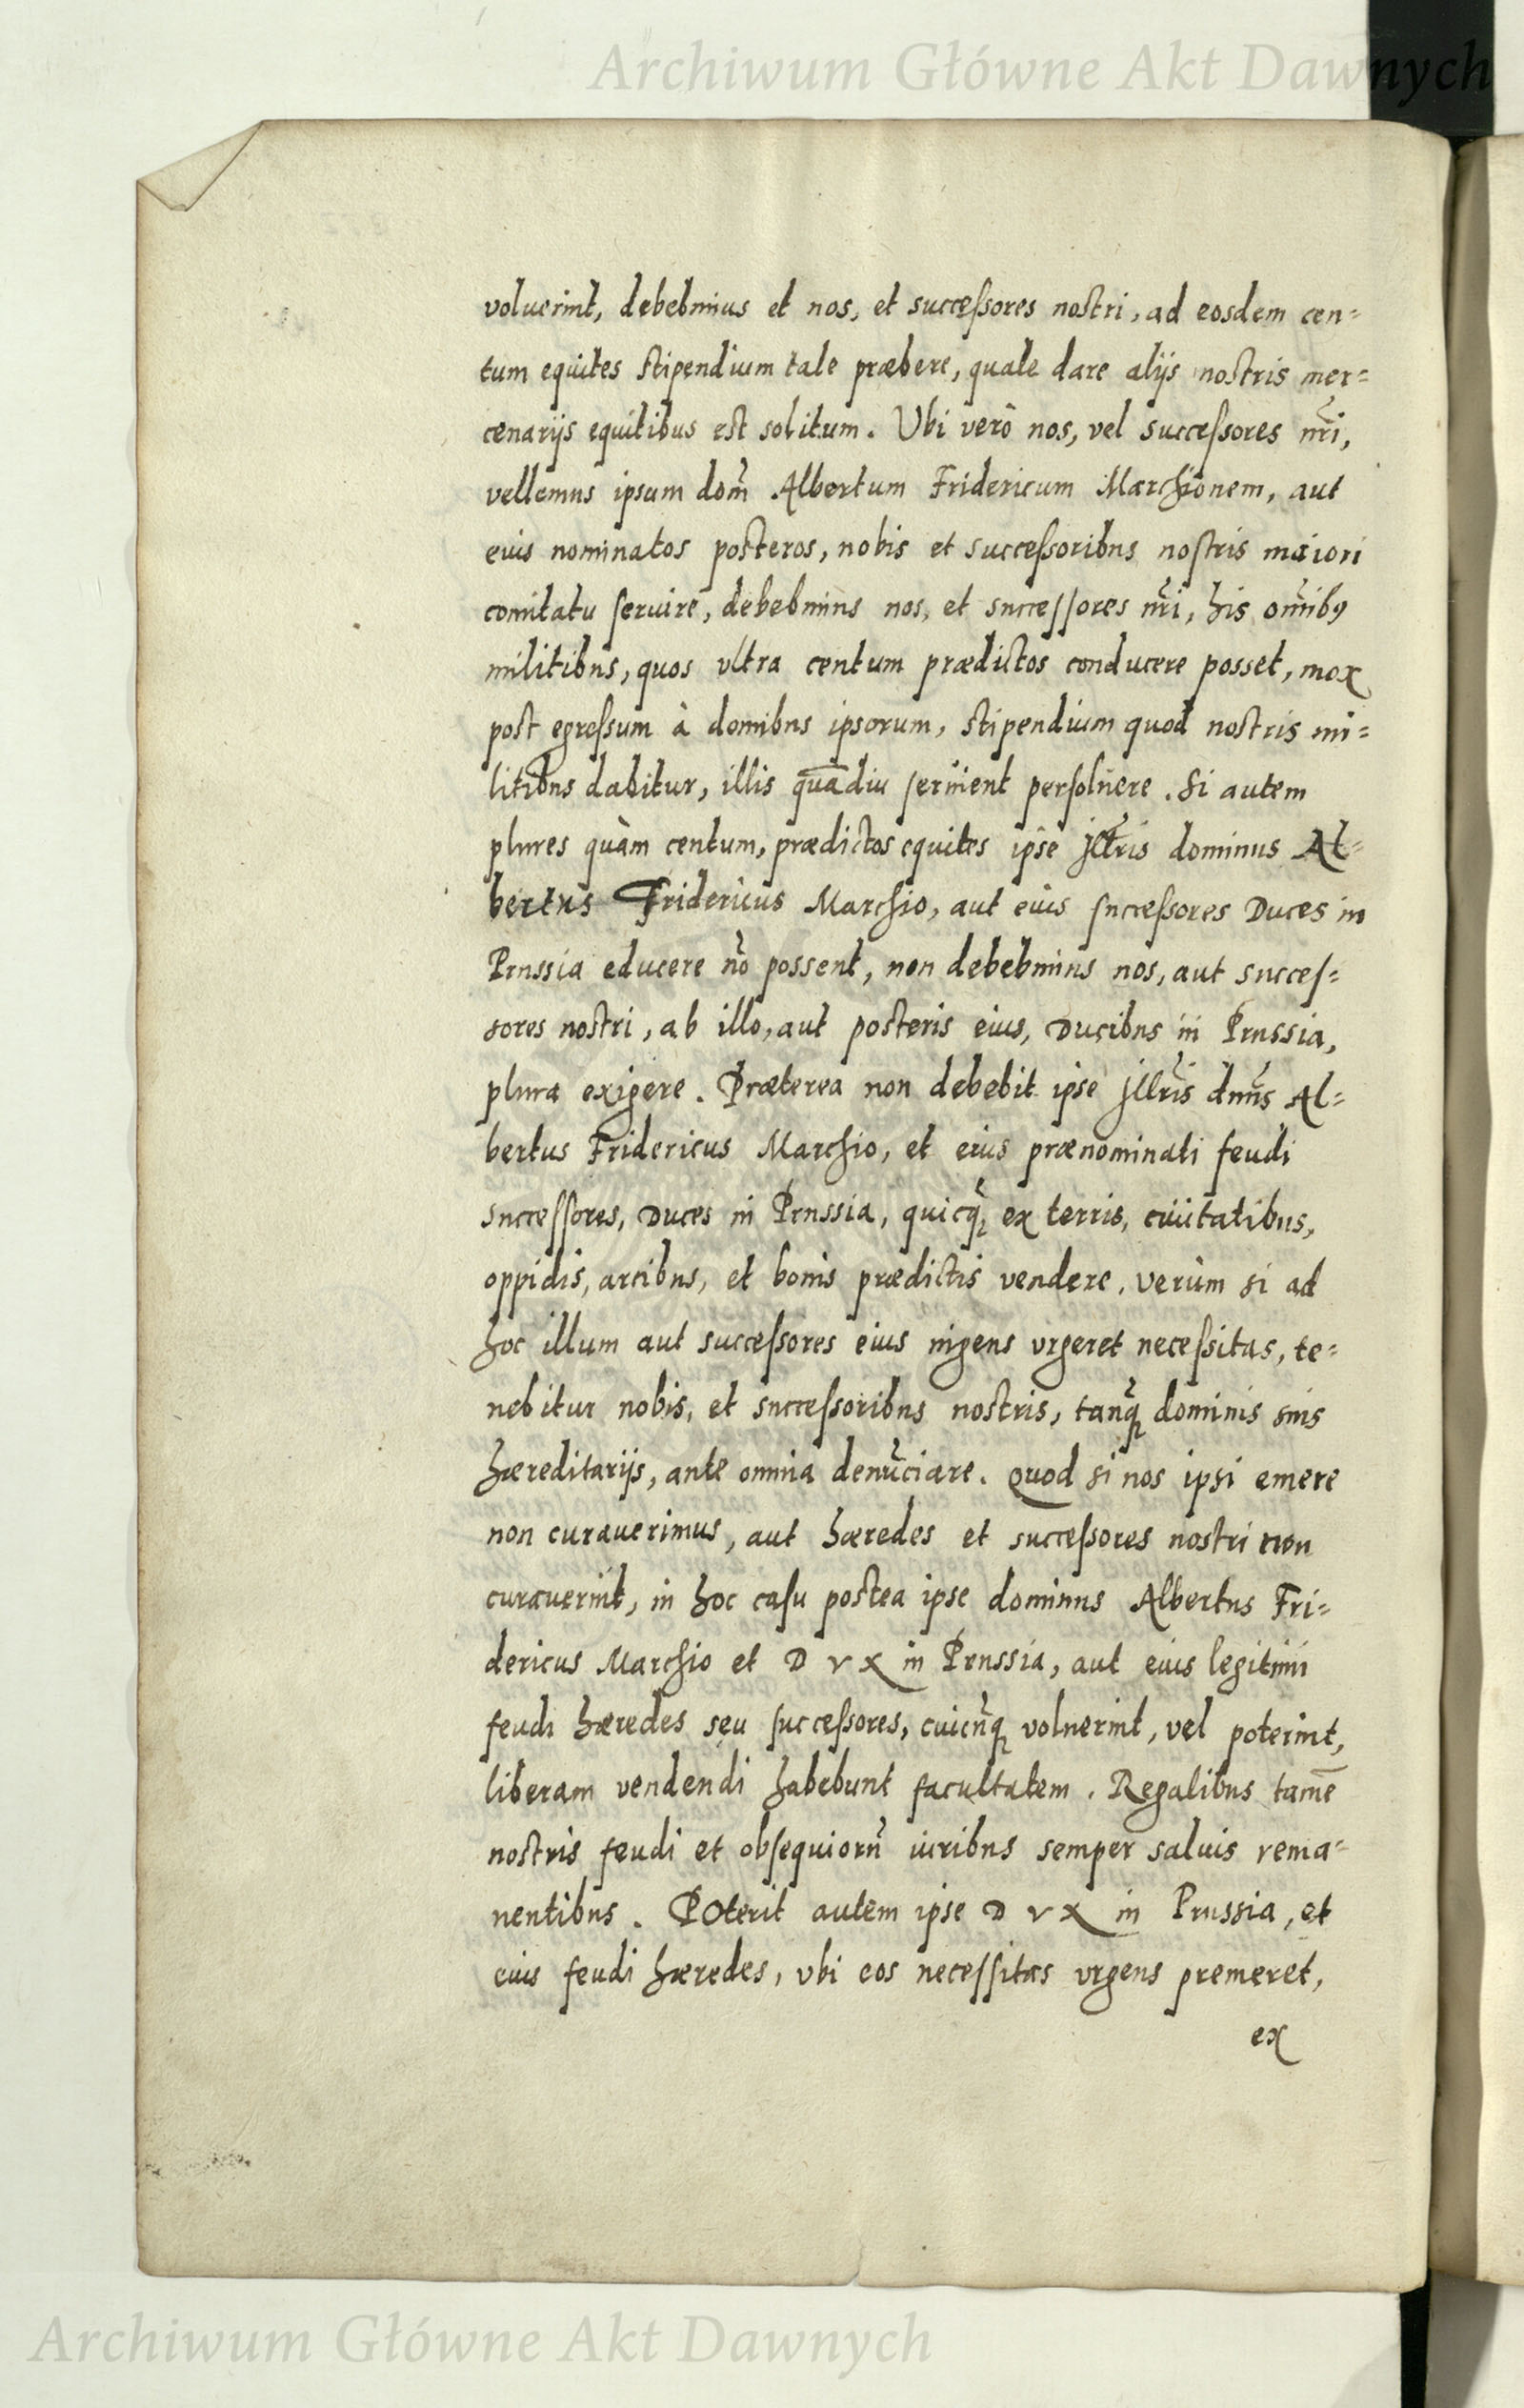 Archiwum Główne Akt Dawnych
voluerint, debebimus et nos, et successores nostri, ad eosdem cen=
tum equites stipendium tale præbere, quale dare alijs nostris mer=
cenarijs equitibus est solitum. Ubi verò nos, vel successores nr̃i,
vellemus ipsum dom̃ Albertum Fridericum Marchionem, aut
eius nominatos posteros, nobis et successoribus nostris maiori
comitatu seruire, debebimus nos, et successores nr̃i, his om̃ibꝯ
militibus, quos vltra centum prædictos conducere posset, mox
post egressum à domibus ipsorum, stipendium quod nostris mi=
litibus dabitur, illis quādiu seruient persoluere. Si autem
plures quàm centum, prædictos equites ipse Jll̃ris dominus Al=
bertus Fridericus Marchio, aut eius successores Duces in
Prussia educere nõ possent, non debebimus nos, aut succes=
sores nostri, ab illo, aut posteris eius, Ducibus in Prussia,
plura exigere. Præterea non debebit ipse Jll̃ris dnũs Al=
bertus Fridericus Marchio, et eius prænominati feudi
successores, Duces in Prussia, quicq̃, ex terris, ciuitatibus,
oppidis, arcibus, et bonis prædictis vendere, verùm si ad
hoc illum aut successores eius ingens vrgeret necessitas, te=
nebitur nobis, et successoribus nostris, tanq̃ dominis suis
hæreditarijs, ante omnia denũciare. Quod si nos ipsi emere
non curauerimus, aut hæredes et successores nostri non
curauerint, in hoc casu postea ipse dominus Albertus Fri=
dericus Marchio et D V X in Prussia, aut eius legitimi
feudi hæredes seu successores, cuicũq̃ voluerint, vel poterint,
liberam vendendi habebunt facultatem. Regalibus tamē
nostris feudi et obsequiorũ iuribus semper saluis rema=
nentibus. POterit autem ipse D V X in Prussia, et
eius feudi hæredes, vbi eos necessitas vrgens premeret,
ex
Archiwum Główne Akt Dawnych